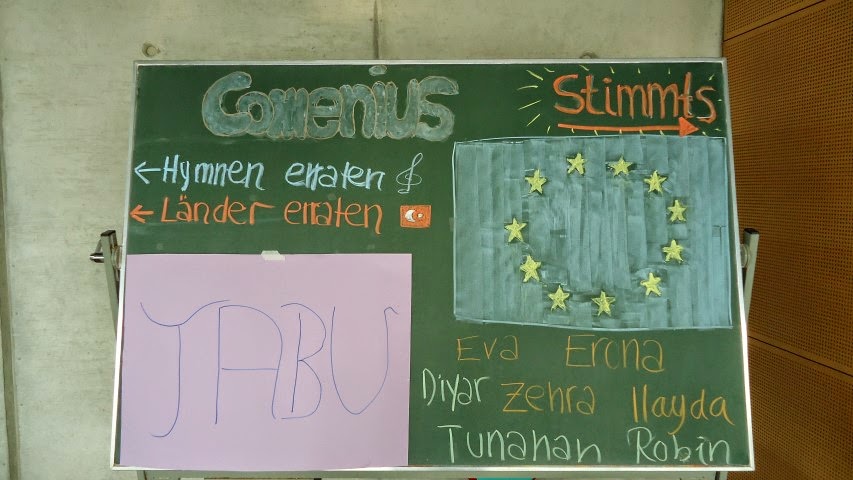 Comenius
Stimmts
Hymnen erraten
Länder erraten
TABU
Eva Ercna
Diyar Zehra Ilayda
Tunahan Robin